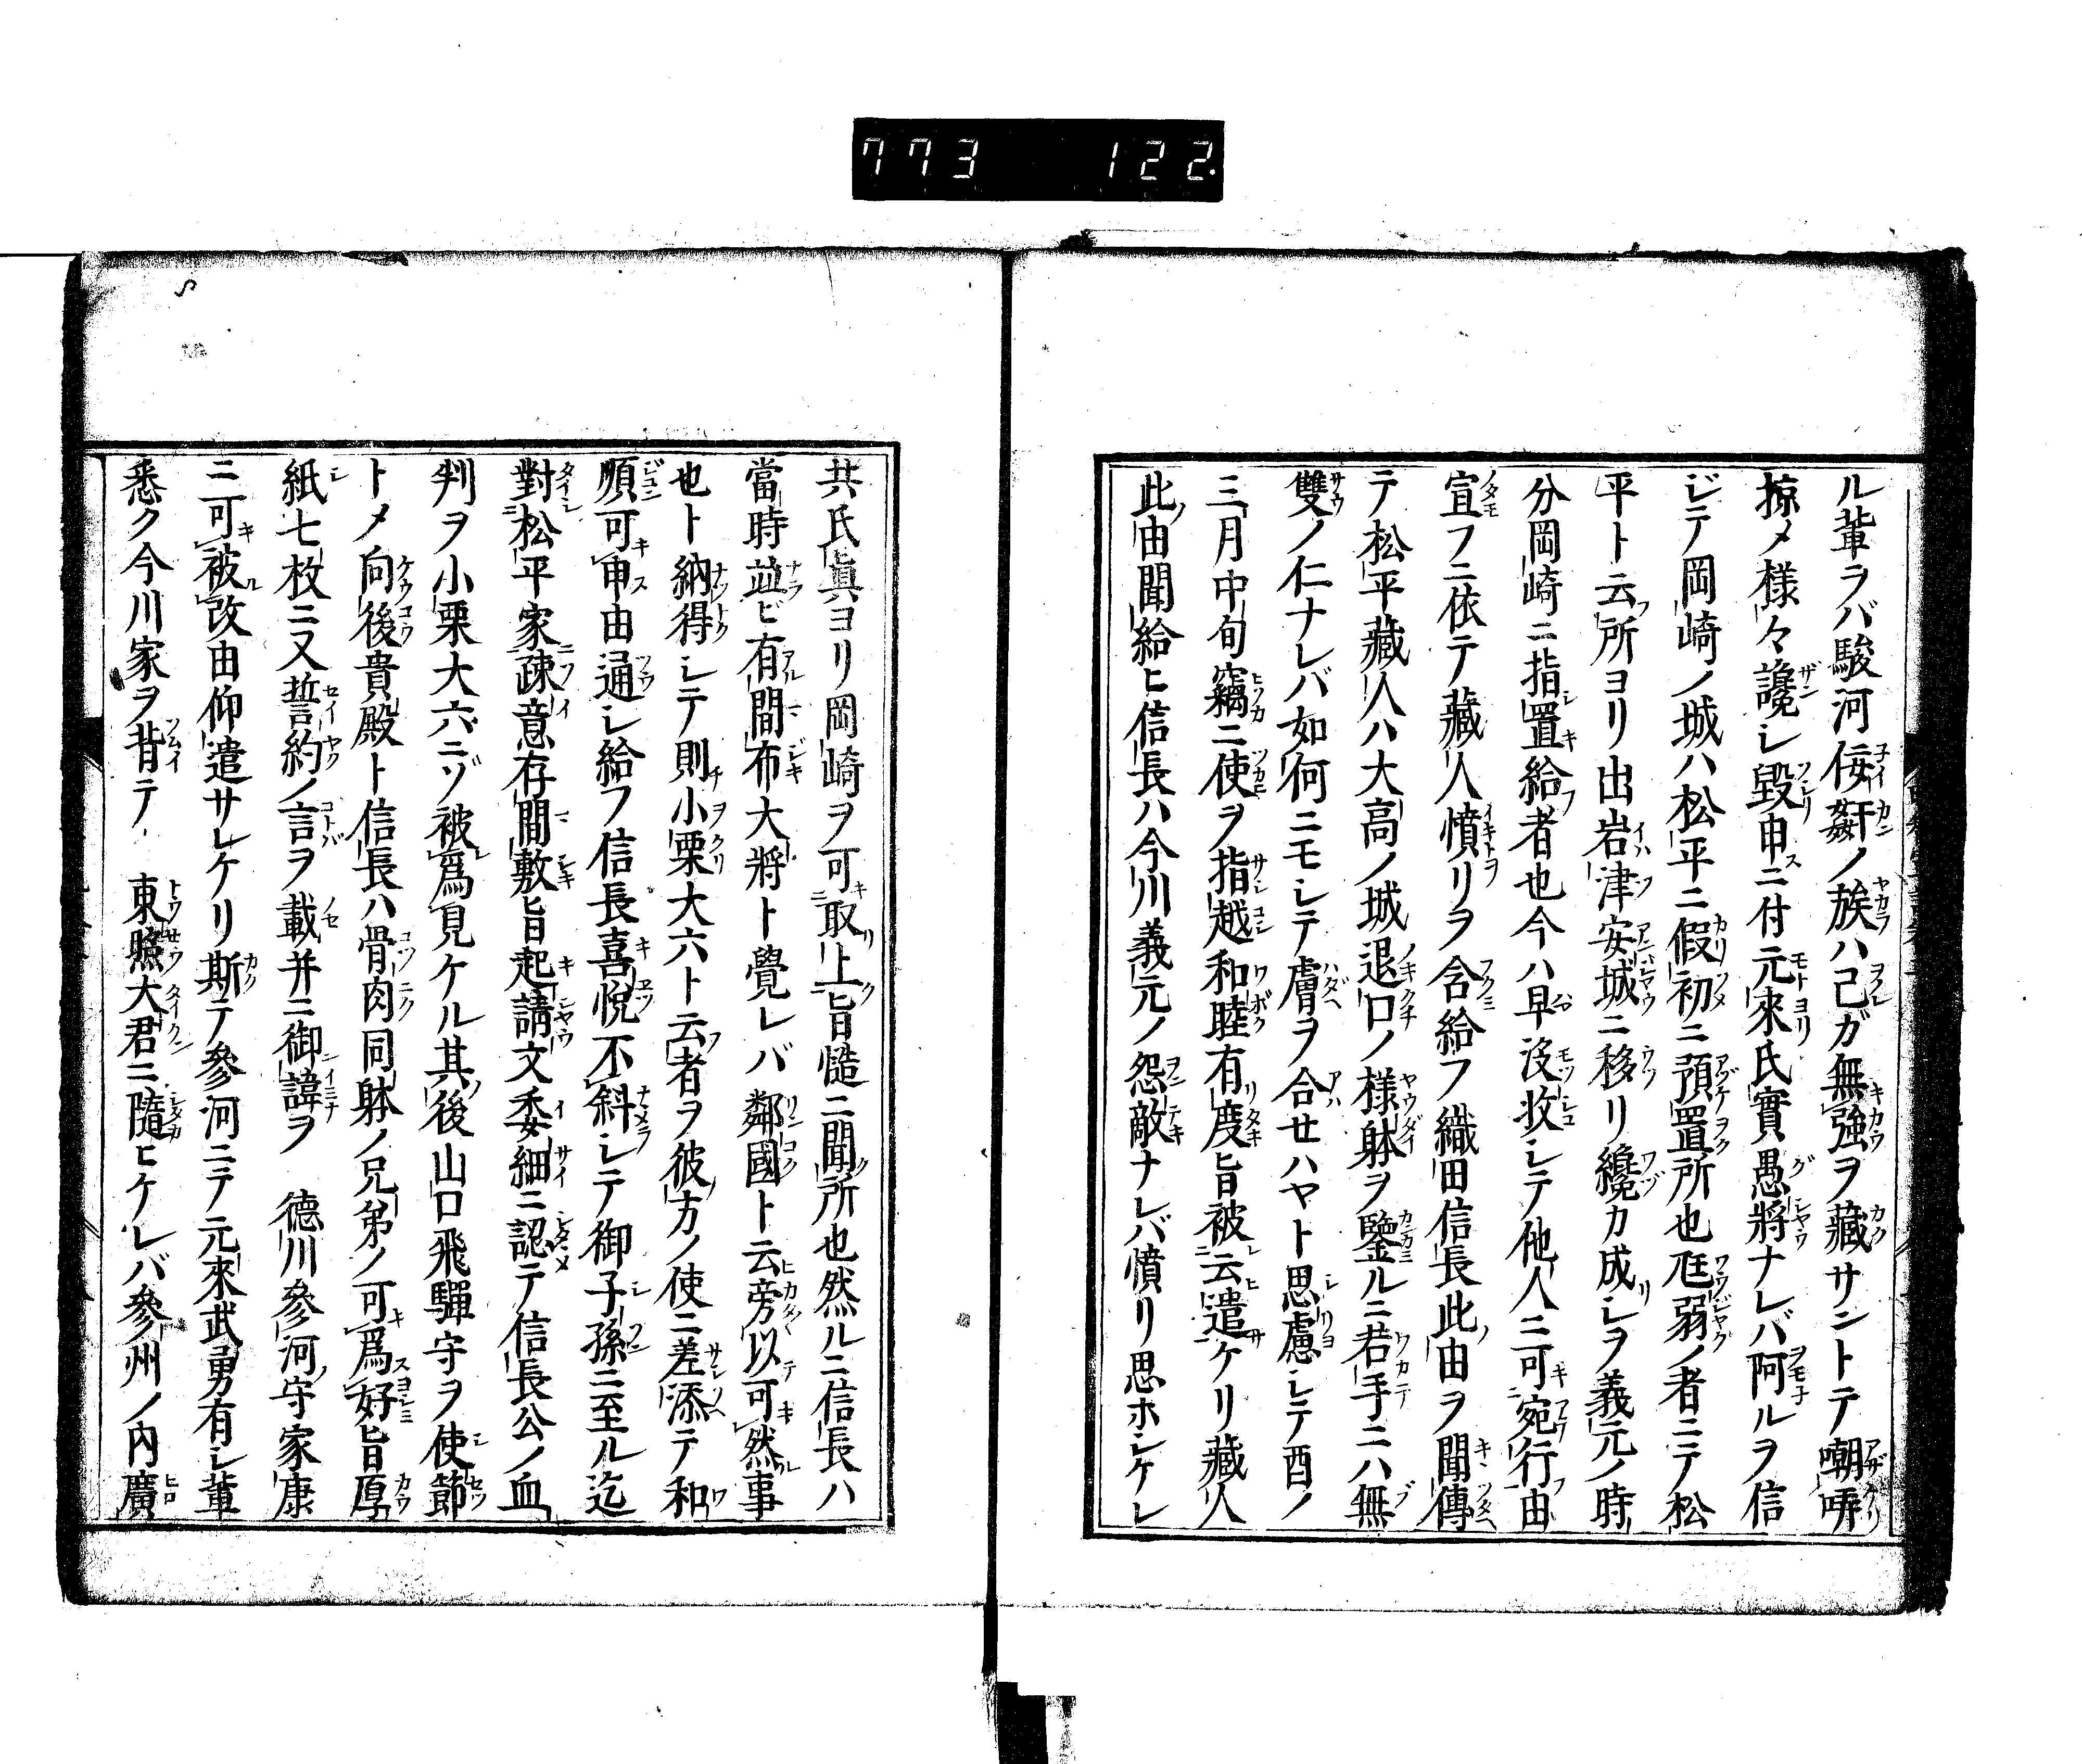 773 122.
ル輩ヲバ駿河侫姧ノ族ハ己ガ無強ヲ藏サントテ嘲哢
掠メ様々讒シ毀申ニ付元來氏實愚將ナレバ阿ルヲ信
ジテ岡崎ノ城ハ松平ニ假初ニ預置所也尫弱ノ者ニテ松
平ト云所ヨリ出岩津安城ニ移リ纔カ成シヲ義元ノ時
分岡崎ニ指置給者也今ハ早没收シテ他人ニ可宛行由
宣フニ依テ藏人憤リヲ含給フ織田信長此由ヲ聞傳
テ松平藏人ハ大高ノ城退口ノ様躰ヲ鑒ルニ若手ニハ無
雙ノ仁ナレバ如何ニモシテ膚ヲ合セハヤト思慮シテ酉ノ
三月中旬竊ニ使ヲ指越和睦有度旨被云遣ケリ藏人
此由聞給ヒ信長ハ今川義元ノ怨敵ナレバ憤リ思ホシケレ
共氏眞ヨリ岡崎ヲ可取上旨慥ニ聞所也然ルニ信長ハ
當時並ビ有間布大將ト覺レバ鄰國ト云旁以可然事
也ト納得シテ則小栗大六ト云者ヲ彼方ノ使ニ差添テ和
順可申由通シ給フ信長喜悅不斜シテ御子孫ニ至ル迄
對松平家疎意存間敷旨起請文委細ニ認テ信長公ノ血
判ヲ小栗大六ニゾ被爲見ケル其後山口飛驒守ヲ使節
トメ向後貴殿ト信長ハ骨肉同躰ノ兄弟ノ可爲好旨厚
紙七枚ニ又誓約ノ言ヲ載并ニ御諱ヲ 德川參河守家康
ニ可被改由仰遣サレケリ斯テ參河ニテ元來武勇有シ輩
悉ク今川家ヲ背テ 東照大君ニ隨ヒケレバ參州ノ内廣